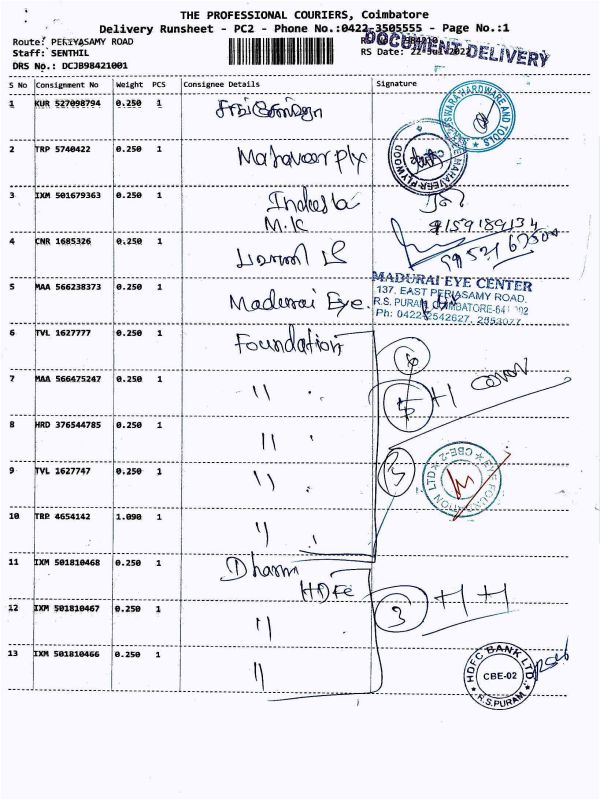 THE PROFESSIONAL COURIERS, Coimbatore
Delivery Runsheet - PC2 - Phone No.:0422-3505555 - Page No.:1
DOCUMENT DELIVERY
Route: PERIYASAMY ROAD
Staff: SENTHIL RS Date: 22-Jul-2022
DRS No.: DCJB98421001
S No Consignment No Weight PCS Consignee Details Signature
1 KUR 527098794 0.250 1
2 TRP 5740422 0.250 1 Mahaveer ply
MAHAVEER PLYWOOD
HARDWARE AND TOOLS
3 IXM 501679363 0.250 1
M.K
9159189134
4 CNR 1685326 0.250 1
5 MAA 566238373 0.250 1 Madurai Eye.
MADURAI EYE CENTER
137, EAST PERIASAMY ROAD,
R.S. PURAM, COIMBATORE-641 002
Ph: 0422-2542627, 2553077
6 TVL 1627777 0.250 1 Foundation
7 MAA 566475247 0.250 1 " 5 +1 cover
8 HRD 376544785 0.250 1 "
9 TVL 1627747 0.250 1 "
EYE FOUNDATION LTD * CBE-2 *
10 TRP 4654142 1.090 1 "
11 IXM 501810468 0.250 1 Dharm
HDFC
12 IXM 501810467 0.250 1 " 3
13 IXM 501810466 0.250 1 "
HDFC BANK LTD
CBE-02
R.S.PURAM